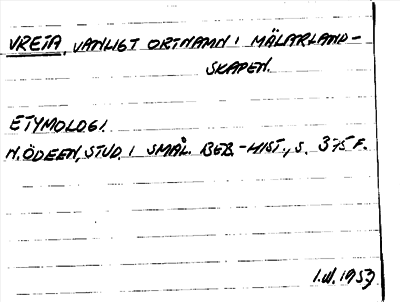 VRETA, VANLIGT ORTNAMN I MÄLARLAND-
SKAPEN.
ETYMOLOGI.
N. ÖDEEN, STUD. I SMÅL. BEB.-HIST., S. 375 F.
1.VI.1953